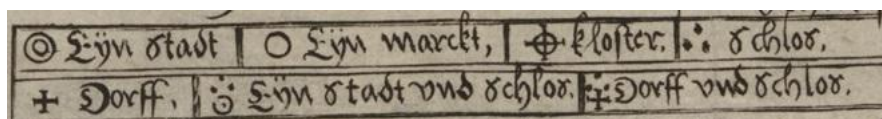 Eÿn stadt Eÿn marckt, kloster. schlos.
Dorff. Eÿn stadt vnd schlos. Dorff vnd schlos.